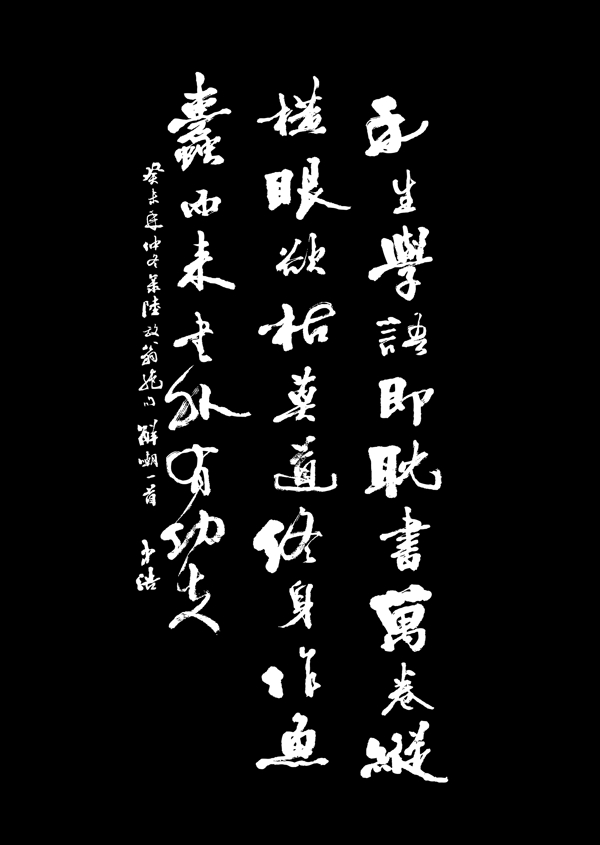 我生學語即耽書萬卷縱
橫眼欲枯莫道終身作魚
蠹而来書外有功夫
癸未年仲冬錄陸放翁解嘲一首